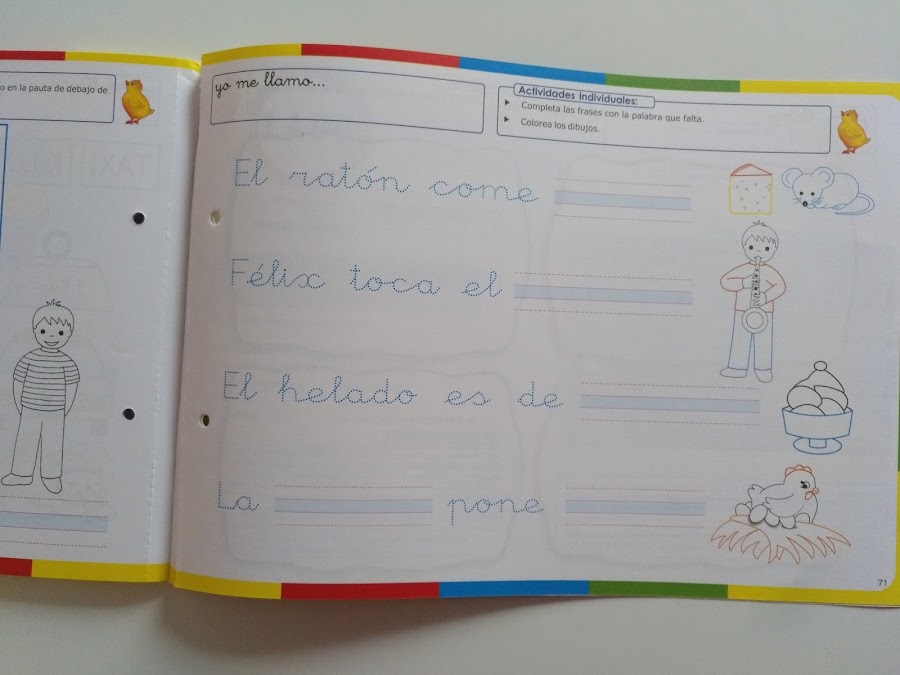 o en la pauta de debajo de
yo me llamo...
Actividades individuales:
Completa las frases con la palabra que falta.
Colorea los dibujos.
El ratón come
Félix toca el
El helado es de
La pone
71